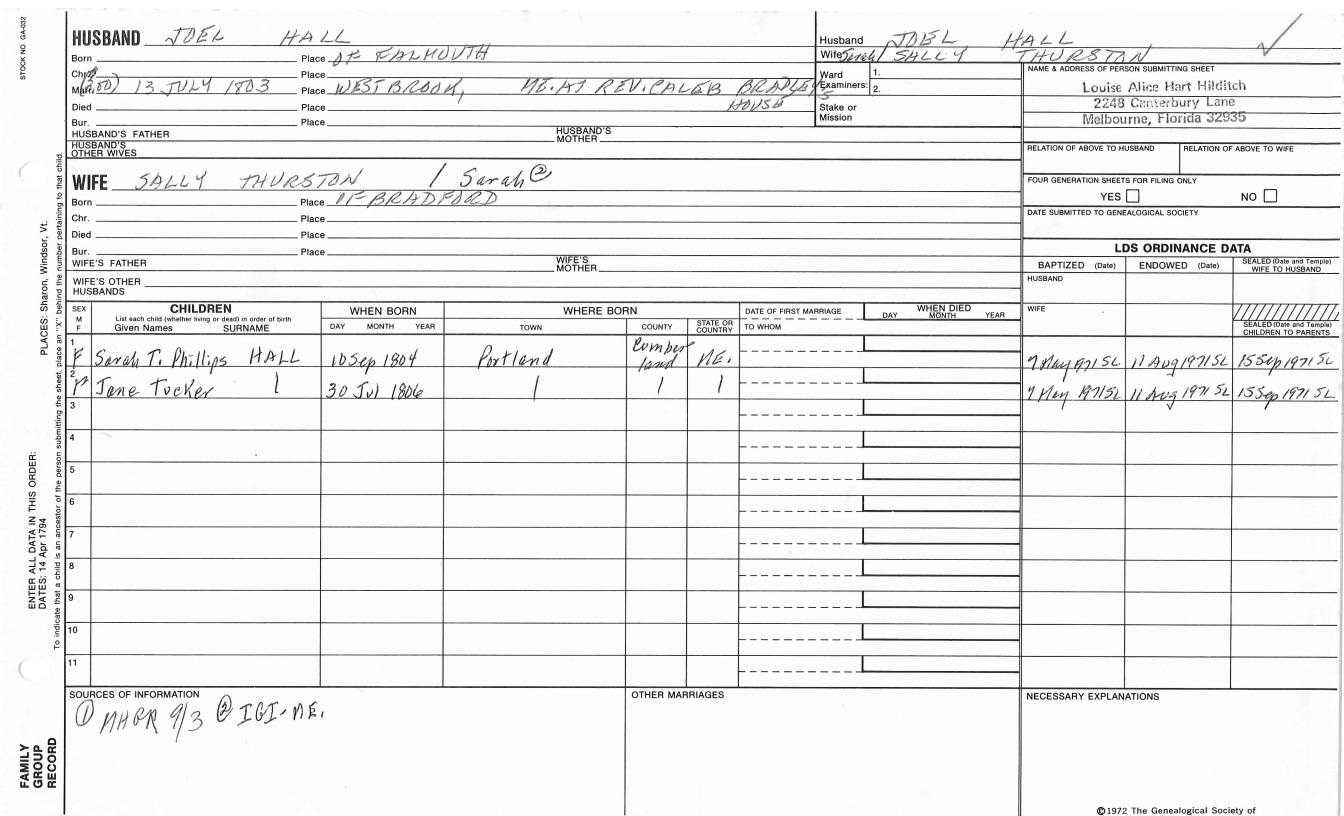 STOCK NO. GA-032
HUSBAND JOEL HALL
Born Place OF FALMOUTH
Chr. Place
Marr. 13 JULY 1803 Place WESTBROOK, ME. AT REV. CALEB BRADLEY'S
HOUSE
Died Place
Bur. Place
HUSBAND'S FATHER HUSBAND'S MOTHER
HUSBAND'S OTHER WIVES
WIFE SALLY THURSTON / Sarah ②
Born Place OF BRADFORD
Chr. Place
Died Place
Bur. Place
WIFE'S FATHER WIFE'S MOTHER
WIFE'S OTHER HUSBANDS
Husband JOEL HALL
Wife Sarah/ SALLY THURSTON
Ward Examiners: 1. 2.
Stake or Mission
NAME & ADDRESS OF PERSON SUBMITTING SHEET
Louise Alice Hart Hilditch
2248 Canterbury Lane
Melbourne, Florida 32935
RELATION OF ABOVE TO HUSBAND RELATION OF ABOVE TO WIFE
FOUR GENERATION SHEETS FOR FILING ONLY
YES NO
DATE SUBMITTED TO GENEALOGICAL SOCIETY
LDS ORDINANCE DATA
BAPTIZED (Date) ENDOWED (Date) SEALED (Date and Temple) WIFE TO HUSBAND
HUSBAND
WIFE
SEALED (Date and Temple) CHILDREN TO PARENTS
SEX M F CHILDREN WHEN BORN WHERE BORN DATE OF FIRST MARRIAGE WHEN DIED
List each child (whether living or dead) in order of birth
Given Names SURNAME DAY MONTH YEAR TOWN COUNTY STATE OR COUNTRY TO WHOM DAY MONTH YEAR
1 F Sarah T. Phillips HALL 10 Sep 1804 Portland Cumberland ME. 7 May 1971 SL 11 Aug 1971 SL 15 Sep 1971 SL
2 Jane Tucker 30 Jul 1806 7 May 1971 SL 11 Aug 1971 SL 15 Sep 1971 SL
3
4
5
6
7
8
9
10
11
SOURCES OF INFORMATION OTHER MARRIAGES NECESSARY EXPLANATIONS
① MHGR 9/3 ② IGI-ME.
©1972 The Genealogical Society of
PLACES: Sharon, Windsor, Vt.
To indicate that a child is an ancestor of the person submitting the sheet, place an "X" behind the number pertaining to that child.
ENTER ALL DATA IN THIS ORDER:
DATES: 14 Apr 1794
FAMILY
GROUP
RECORD